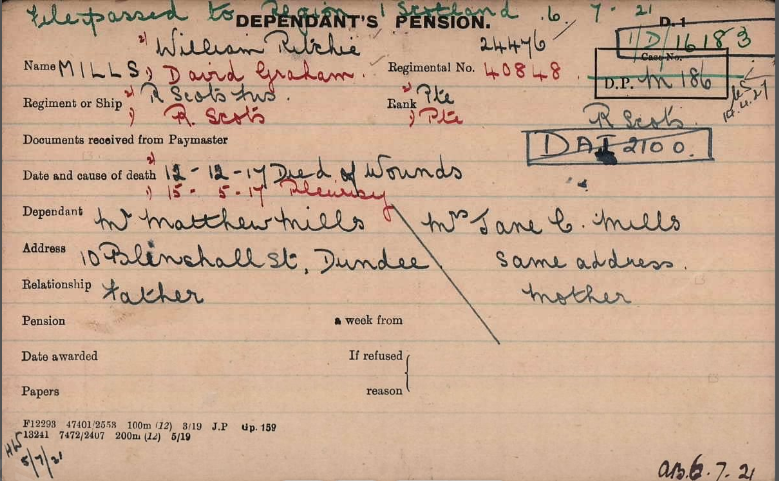 File passed to Region 1 Scotland 6.7.21
DEPENDANT'S PENSION.
D.1
1/D/16183
2) William Ritchie 24476
Case No.
Name MILLS 1) David Graham. Regimental No. 40848
D.P. M 186
Regiment or Ship 2) R Scots Fus. Rank 2) Pte
1) R. Scots 1) Pte R Scots.
Documents received from Paymaster
DA 2100.
2)
Date and cause of death 12-12-17 Died of Wounds
1) 15-5-17 Pleurisy
Dependant Mr Matthew Mills Mrs Jane C. Mills
Address 10 Blinshall St, Dundee. Same address.
Relationship Father Mother
Pension a week from
Date awarded If refused
Papers reason
F12293 47401/2553 100m (12) 3/19 J.P Gp. 159
13241 7472/2407 200m (12) 5/19
HW
5/7/21
6.7.21